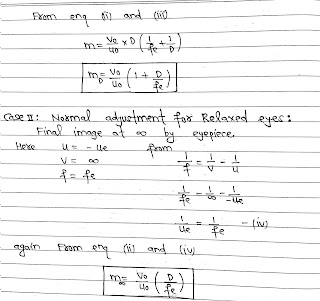 From eqn (ii) and (iii)
m = Vo/uo × D (1/fe + 1/D)
m = Vo/uo (1 + D/fe)
Case II: Normal adjustment for Relaxed eyes:
Final image at ∞ by eyepiece.
Here u = - ue from
V = ∞ 1/f = 1/v - 1/u
f = fe
1/fe = 1/∞ - 1/-ue
1/ue = 1/fe - (iv)
again From eqn (ii) and (iv)
m∞ = Vo/uo (D/fe)